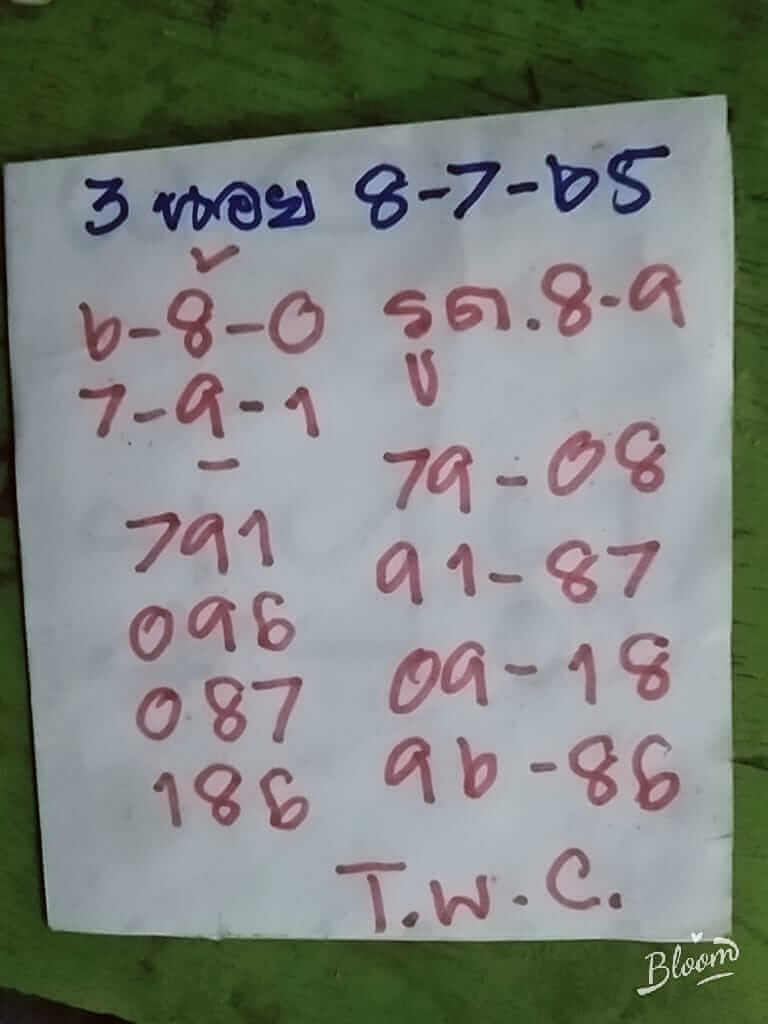 3 หอย 8-7-65
6-8-0 รูด.8-9
7-9-1 บ
79-08
791
91-87
096
09-18
087
96-86
186
T.W.C.
Bloom